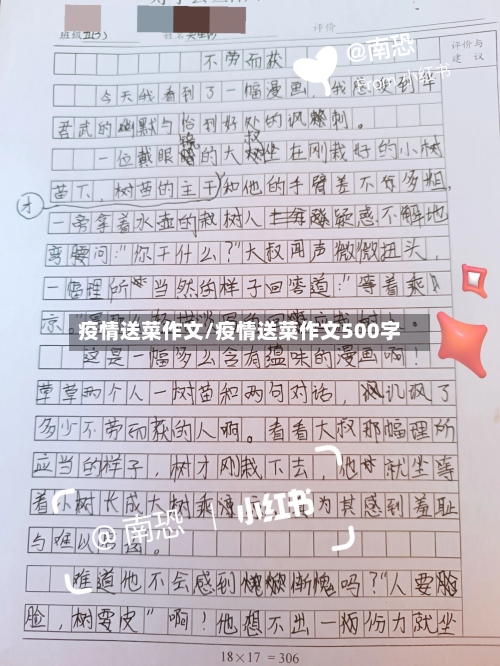 评价
不劳而获
@南恐
评价与
建议
小红书
今天我看到了一幅漫画,我感受到华
君武的幽默与恰到好处的讽刺。
一位戴眼镜的大叔坐在刚栽好的小树
苗下,树苗的主干和他的手臂差不多粗,
才
一旁拿着水壶的栽树人疑惑不解地
弯腰问:"你干什么?"大叔闻声微微扭头,
一幅理所当然的样子回答道:"等着乘
凉
疫情送菜作文/疫情送菜作文500字
这是一幅多么含有蕴味的漫画啊!
草草两个人一树苗和两句对话,讥讽了
多少不劳而获的人啊。看看大叔那幅理所
应当的样子,树才刚栽下去,他就坐等
着小树长成大树乘凉为其感到羞耻
与难以
@南恐 | 小红书
难道他不会感到惭愧吗?"人要脸
脸,树要皮"啊!他想不出一柄份力就坐
18×17=306